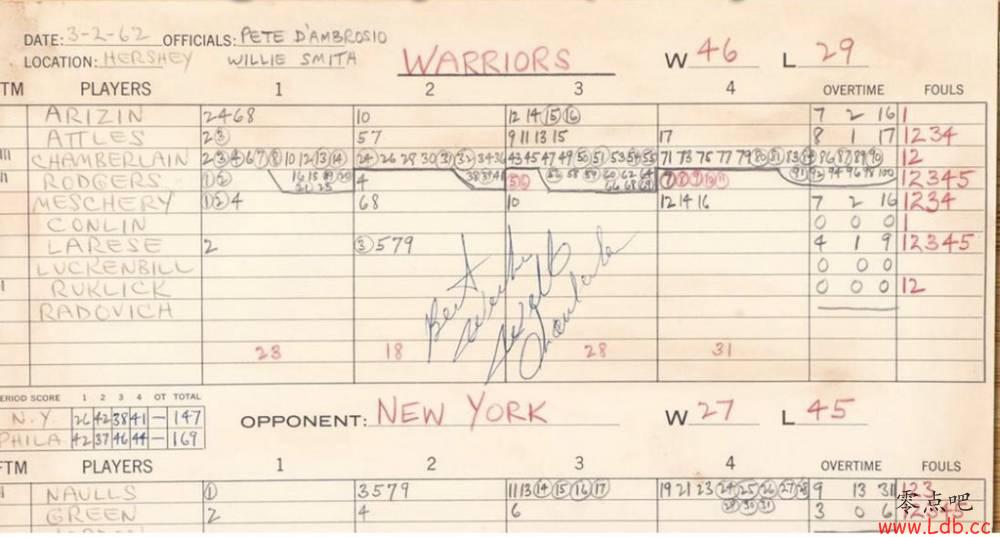 DATE: 3-2-62 OFFICIALS: PETE D'AMBROSIO
LOCATION: HERSHEY WILLIE SMITH WARRIORS W 46 L 29
TM PLAYERS 1 2 3 4 OVERTIME FOULS
ARIZIN 2 4 6 8 10 12 14 15 16 7 2 16 1
ATTLES 2 3 5 7 9 11 13 15 17 8 1 17 1 2 3 4
CHAMBERLAIN 2 3 4 6 7 8 10 12 13 14 24 26 28 30 31 32 34 36 43 45 47 49 50 51 53 54 55 71 73 75 77 79 80 81 83 84 86 87 89 90 1 2
16 18 19 20 38 39 41 56 58 59 60 62 64 91 92 94 96 98 100
RODGERS 1 2 4 5 6 7 8 9 10 11 1 2 3 4 5
21 23 66 68 69
MESCHERY 1 2 4 6 8 10 12 14 16 7 2 16 1 2 3 4
CONLIN 0 0 0 1
LARESE 2 3 5 7 9 4 1 9 1 2 3 4 5
LUCKENBILL 0 0 0
RUKLICK 0 0 0 1 2
RADOVICH
Best
Wilt
23 18 28 31
ERIOD SCORE 1 2 3 4 OT TOTAL
N.Y. 26 42 38 41 — 147
PHILA 42 37 46 44 — 169
OPPONENT: NEW YORK W 27 L 45
FTM PLAYERS 1 2 3 4 OVERTIME FOULS
NAULLS 1 3 5 7 9 11 13 14 15 16 17 19 21 23 24 25 26 27 28 9 13 31 1 2 3
29 30 31
GREEN 2 4 6 3 0 6 1 2 3 4 5
零点吧
www.Ldb.cc